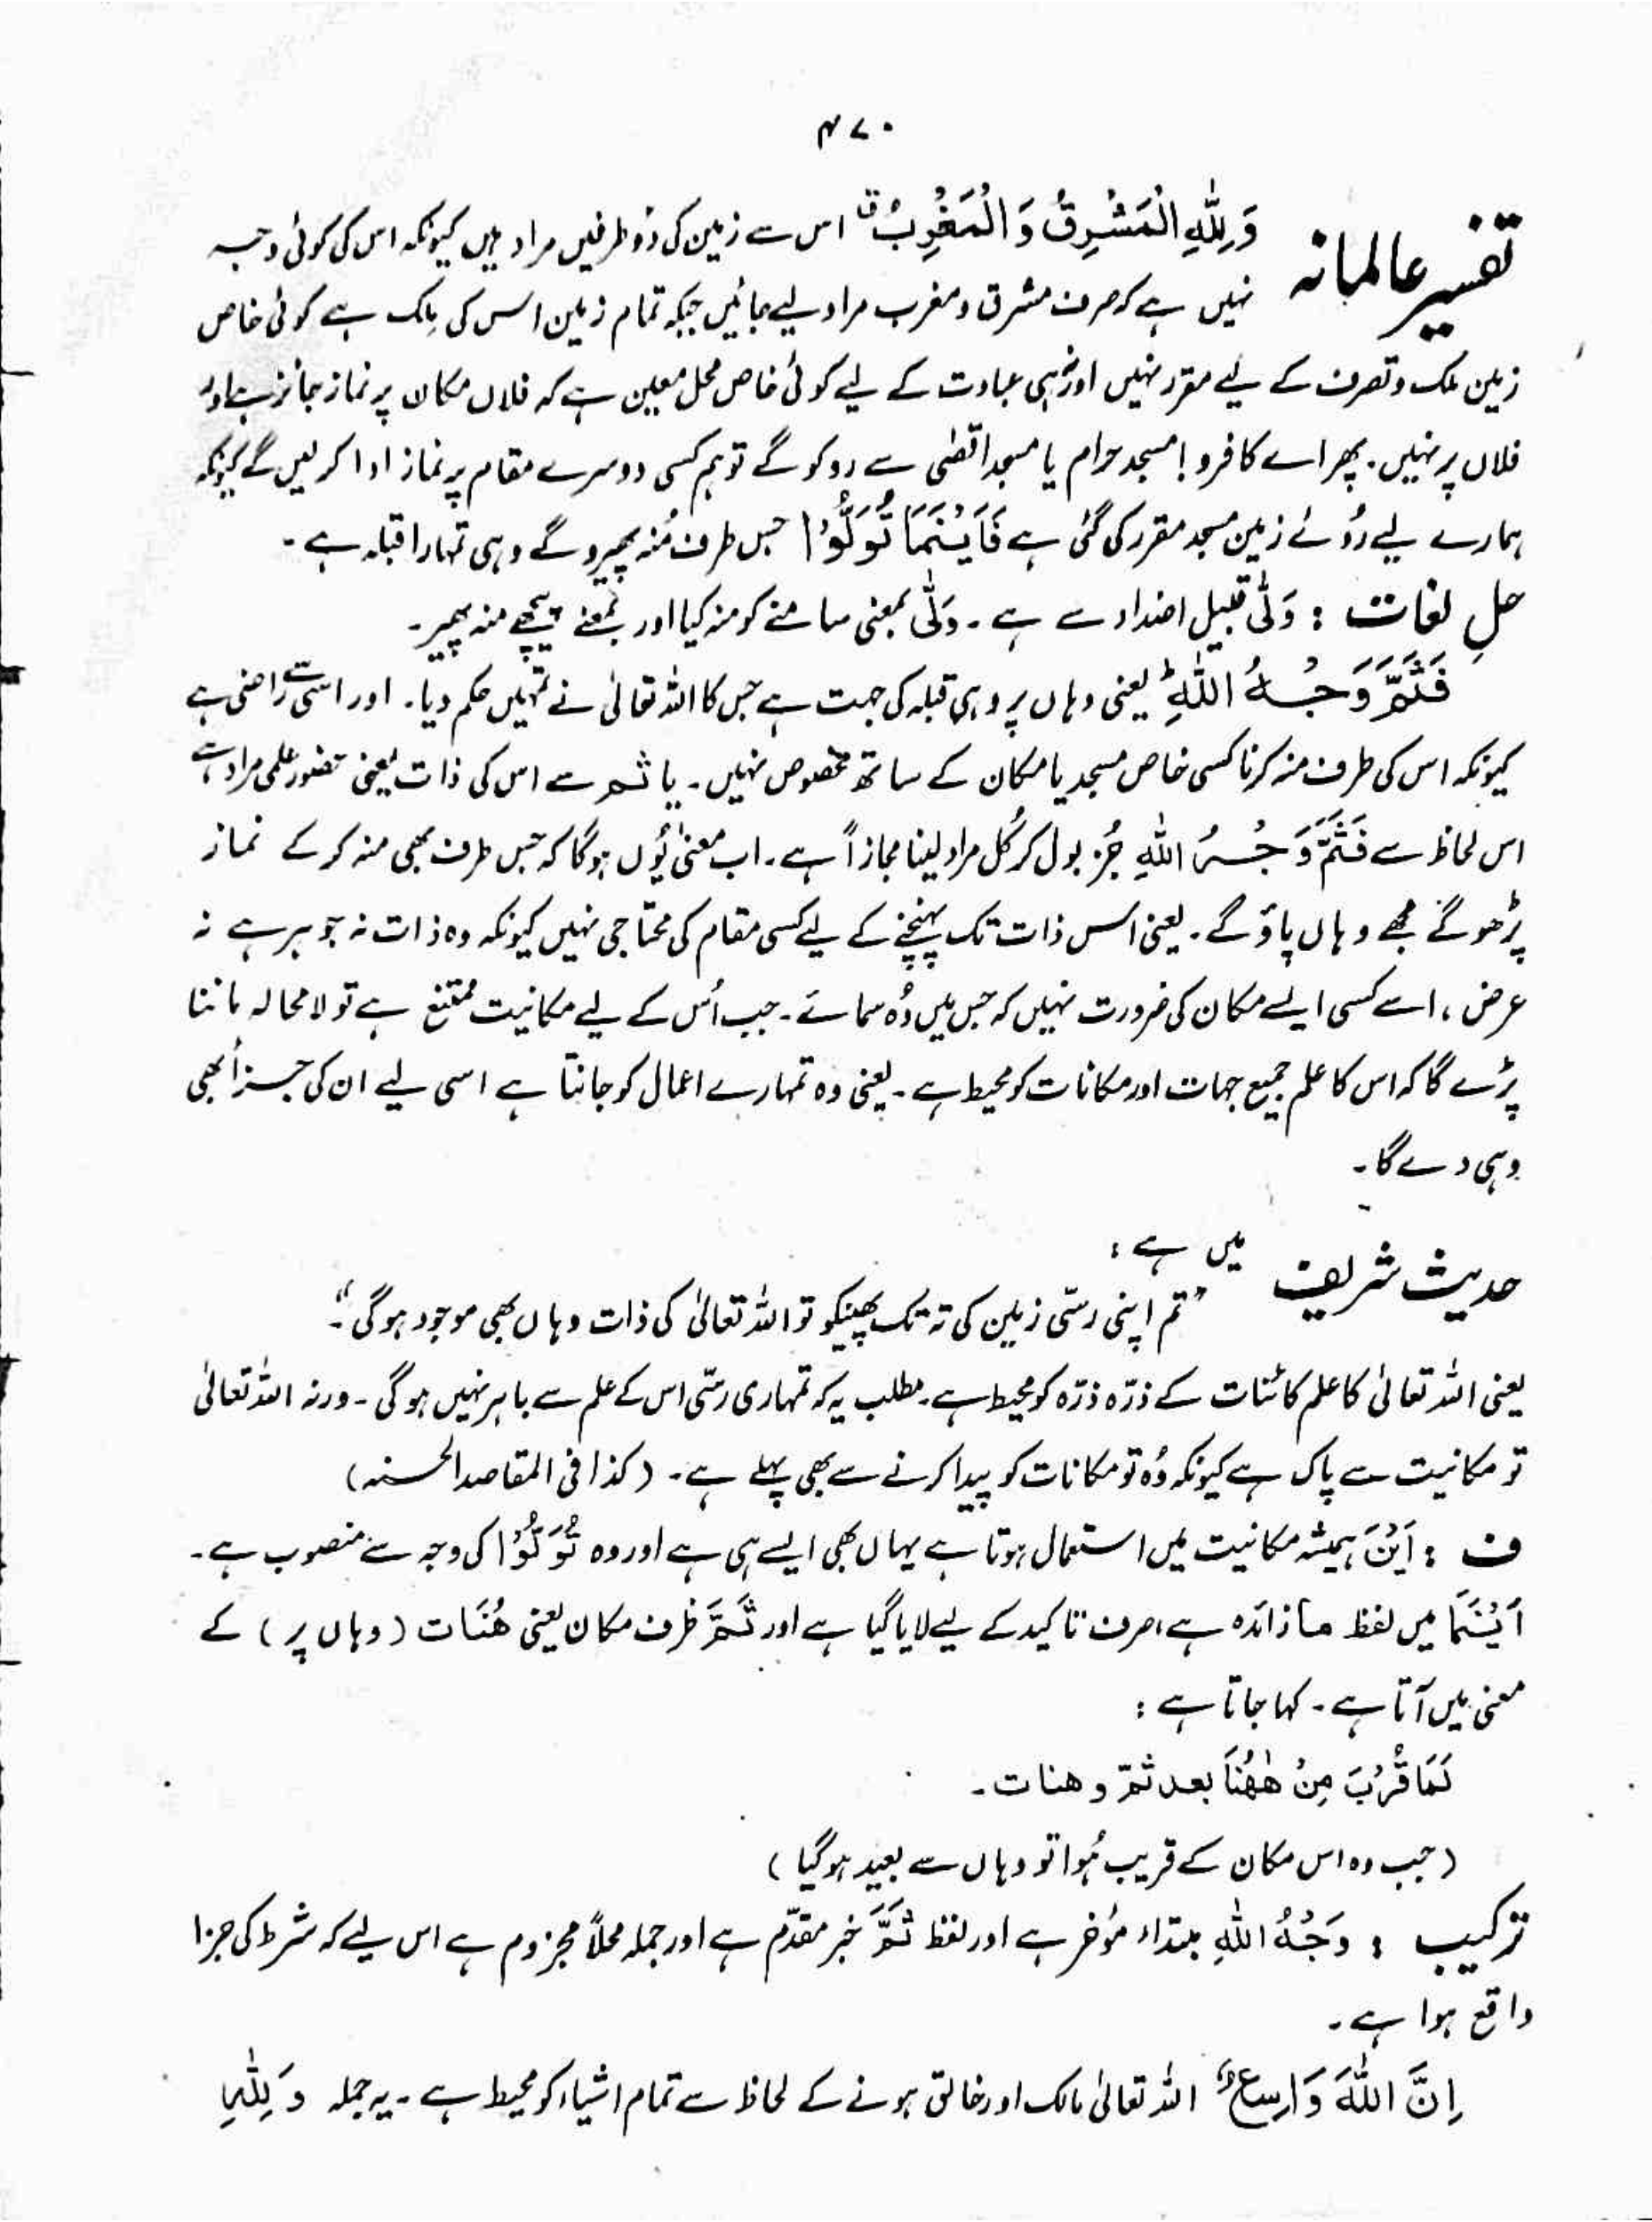 ۴۷۰
تفسیر عالمانہ وَلِلّٰہِ الْمَشْرِقُ وَالْمَغْرِبُ ق اس سے زمین کی دُو طرفیں مراد ہیں کیونکہ اس کی کوئی وجہ
نہیں ہے کہ صرف مشرق و مغرب مراد لیے جائیں جبکہ تمام زمین اسس کی مِلک ہے کوئی خاص
زمین ملک و تصرف کے لیے مقرر نہیں اور نہ ہی عبادت کے لیے کوئی خاص محل معین ہے کہ فلاں مکان پر نماز جائز ہے اور
فلاں پر نہیں۔ پھر اے کافرو! مسجد حرام یا مسجد اقصٰی سے روکو گے تو ہم کسی دوسرے مقام پر نماز ادا کر لیں گے کیونکہ
ہمارے لیے رُوئے زمین مسجد مقرر کی گئی ہے فَاَیْنَمَا تُوَلُّوْا جس طرف مُنہ پھیرو گے وہی تمہارا قبلہ ہے۔
حلِ لغات : وَلّٰی قبیل اضداد سے ہے۔ وَلّٰی بمعنی سامنے کو منہ کیا اور بمعنے پیچھے منہ پھیر۔
فَثَمَّ وَجْہُ اللّٰہِ ط یعنی وہاں پر وہی قبلہ کی جہت ہے جس کا اللہ تعالیٰ نے تمہیں حکم دیا۔ اور اسی سے راضی ہے
کیونکہ اس کی طرف منہ کرنا کسی خاص مسجد یا مکان کے ساتھ مخصوص نہیں۔ یا ثم سے اس کی ذات یعنی حضور علمی مراد ہے
اس لحاظ سے فَثَمَّ وَجْہُ اللّٰہِ جُز بول کر کُل مراد لینا مجازاً ہے۔ اب معنیٰ یُوں ہوگا کہ جس طرف بھی منہ کر کے نماز
پڑھو گے مجھے وہاں پاؤ گے۔ یعنی اسس ذات تک پہنچنے کے لیے کسی مقام کی محتاجی نہیں کیونکہ وہ ذات نہ جوہر ہے نہ
عرض، اسے کسی ایسے مکان کی ضرورت نہیں کہ جس میں وُہ سمائے۔ جب اُس کے لیے مکانیت ممتنع ہے تو لامحالہ ماننا
پڑے گا کہ اس کا علم جمیع جہات اور مکانات کو محیط ہے۔ یعنی وہ تمہارے اعمال کو جانتا ہے اسی لیے ان کی جزا بھی
وہی دے گا۔
حدیث شریف میں ہے :
"تم اپنی رسّی زمین کی تہ تک پھینکو تو اللہ تعالیٰ کی ذات وہاں بھی موجود ہوگی"۔
یعنی اللہ تعالیٰ کا علم کائنات کے ذرّہ ذرّہ کو محیط ہے۔ مطلب یہ کہ تمہاری رسّی اس کے علم سے باہر نہیں ہوگی۔ ورنہ اللہ تعالیٰ
تو مکانیت سے پاک ہے کیونکہ وُہ تو مکانات کو پیدا کرنے سے بھی پہلے ہے۔ (کذا فی المقاصد الحسنہ)
ف : اَیْنَ ہمیشہ مکانیت میں استعمال ہوتا ہے یہاں بھی ایسے ہی ہے اور وہ تُوَلُّوْا کی وجہ سے منصوب ہے۔
اَیْنَمَا میں لفظ ما زائدہ ہے، صرف تاکید کے لیے لایا گیا ہے اور ثَمَّ ظرف مکان یعنی ھُنَات (وہاں پر) کے
معنی میں آتا ہے۔ کہا جاتا ہے :
لَمَا قَرُبَ مِنْ ھٰھُنَا بعد ثَمّ و ھنات۔
(جب وہ اس مکان کے قریب ہُوا تو وہاں سے بعید ہوگیا)
ترکیب : وَجْہُ اللّٰہِ مبتداء مؤخر ہے اور لفظ ثَمَّ خبر مقدّم ہے اور جملہ محلاً مجزوم ہے اس لیے کہ شرط کی جزا
واقع ہوا ہے۔
اِنَّ اللّٰہَ وَاسِعٌ اللہ تعالیٰ مالک اور خالق ہونے کے لحاظ سے تمام اشیاء کو محیط ہے۔ یہ جملہ وَلِلّٰہِ